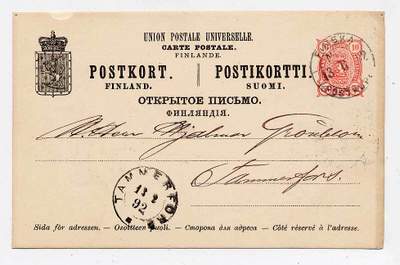 UNION POSTALE UNIVERSELLE.
CARTE POSTALE.
FINLANDE
POSTKORT. POSTIKORTTI.
FINLAND. SUOMI.
ОТКРЫТОЕ ПИСЬМО.
ФИНЛЯНДІЯ.
10
Herr Hjalmar
Tammerfors.
TAMMERFORS
92
Sida för adressen. - Osoitteen puoli. - Сторона для адреса - Côté réservé à l'adresse.